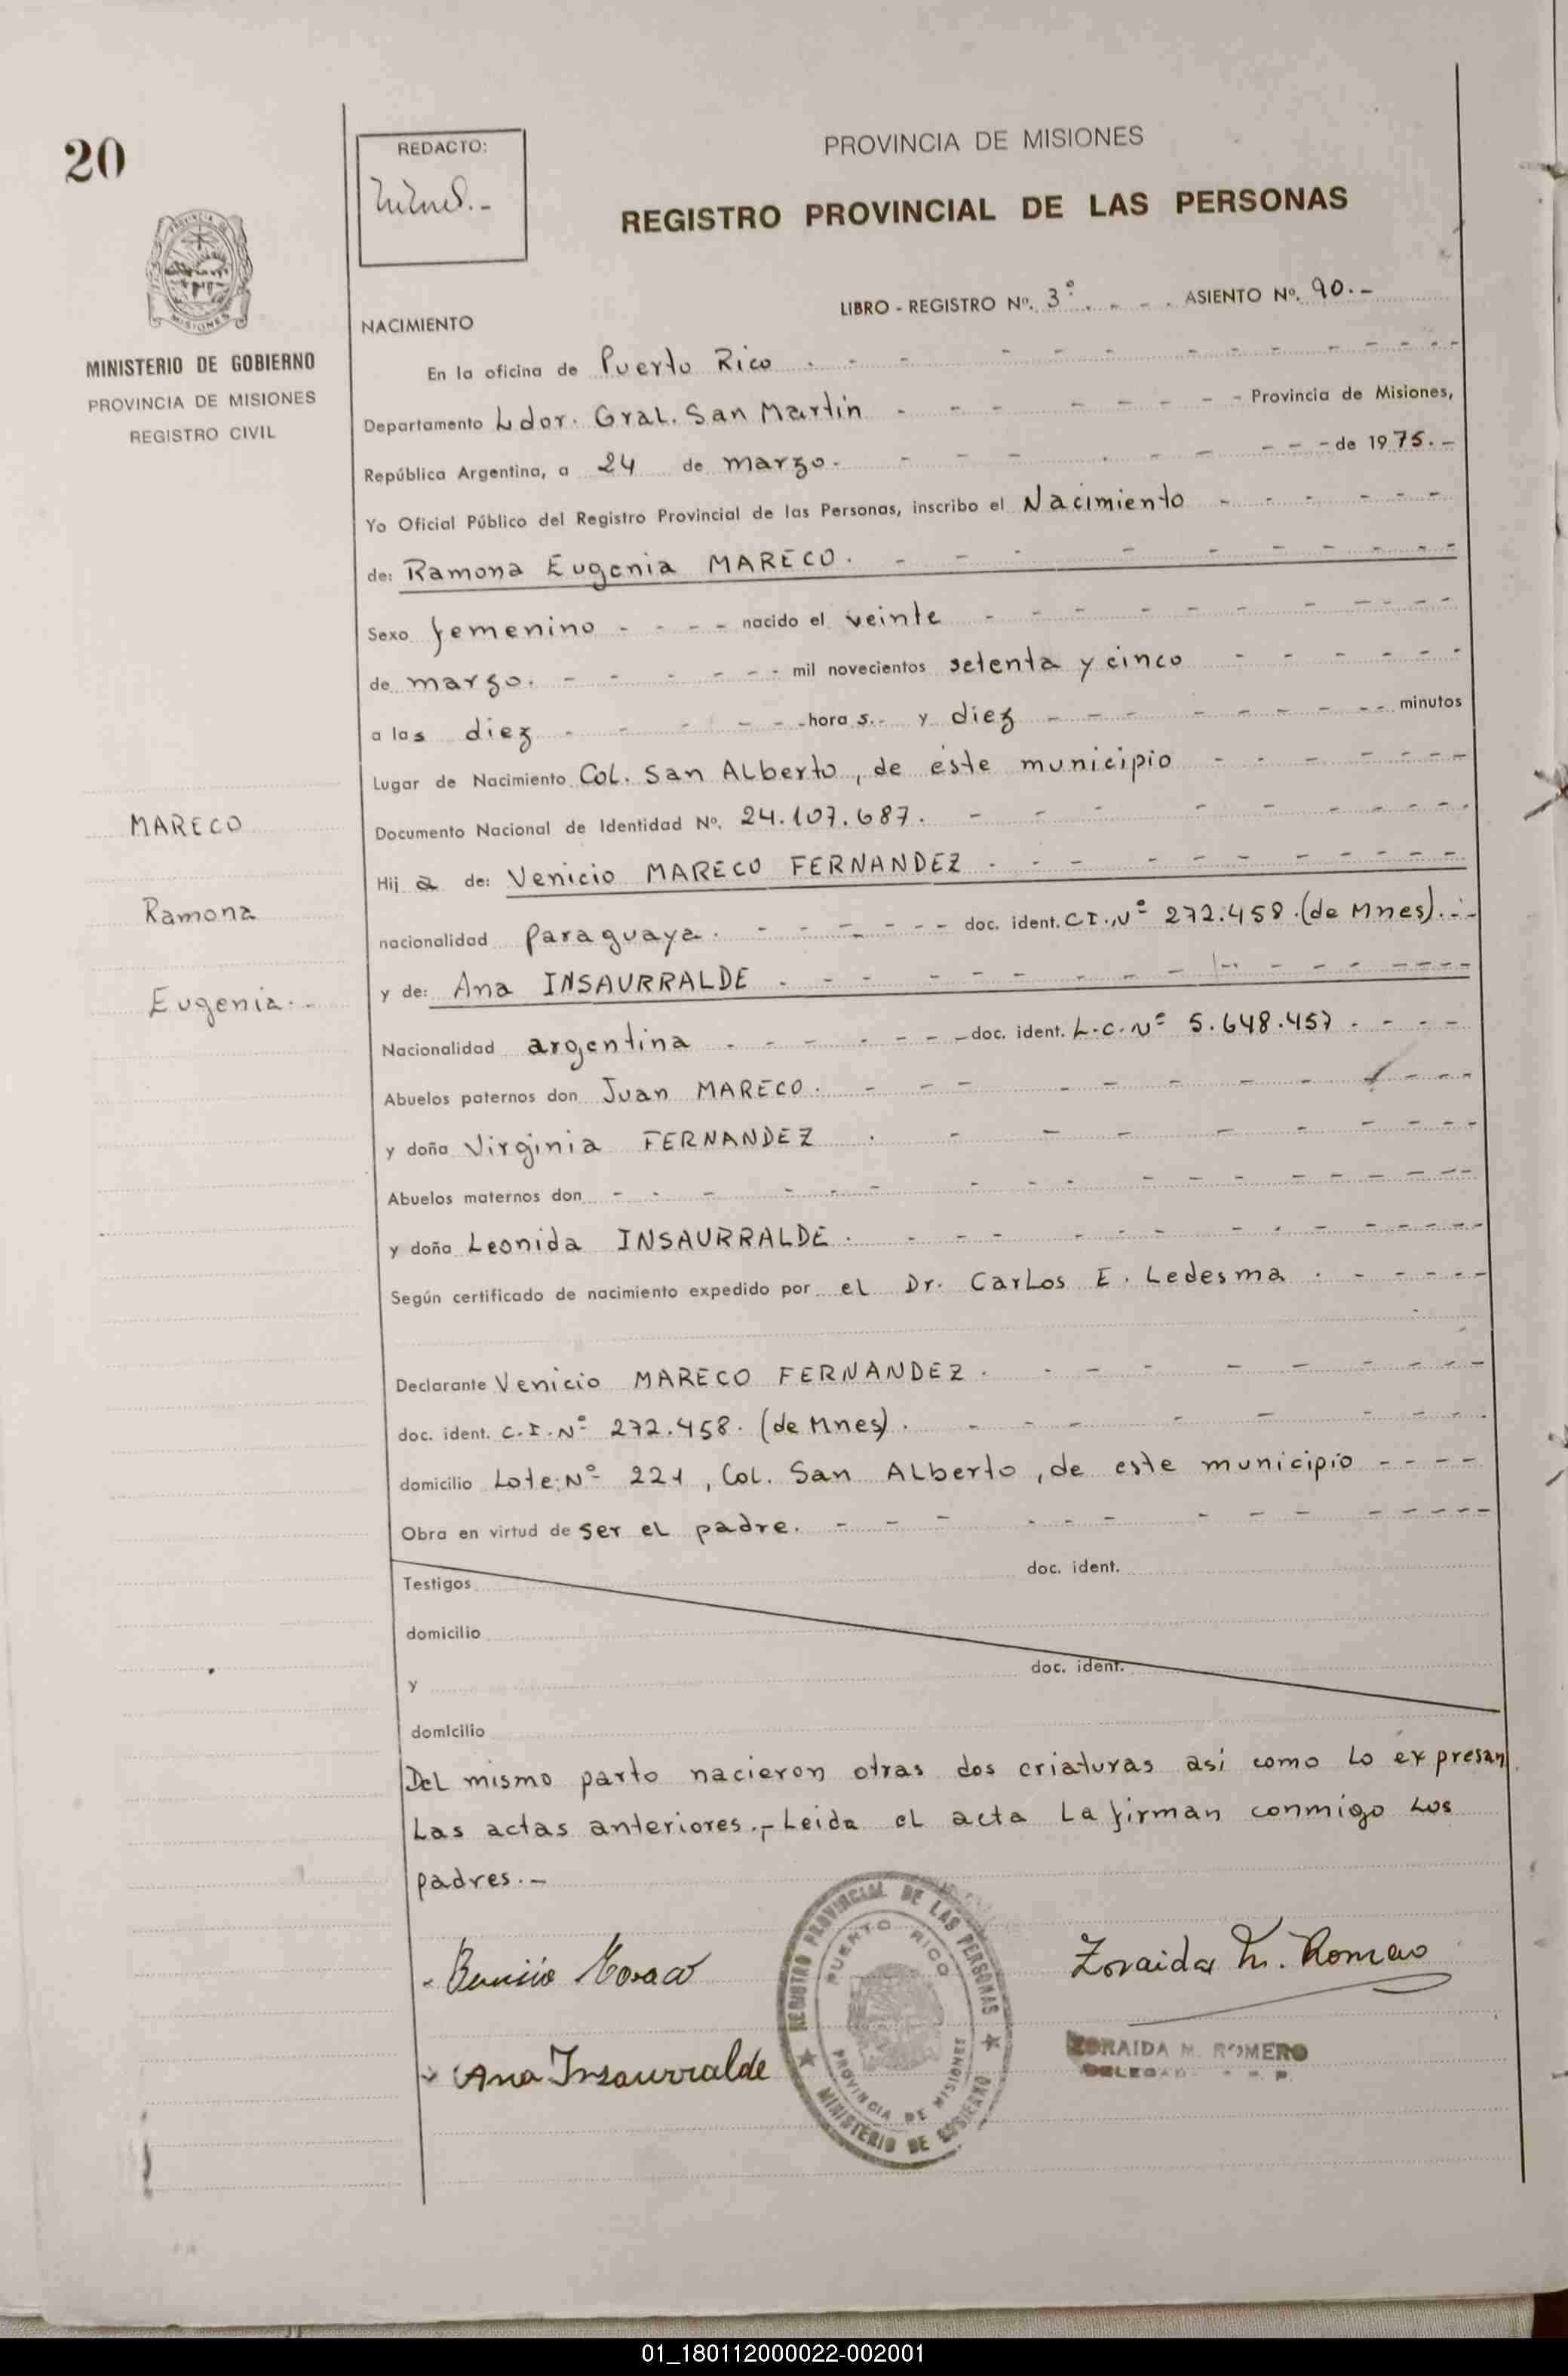 20
REDACTO:
PROVINCIA DE MISIONES
REGISTRO PROVINCIAL DE LAS PERSONAS
MISIONES
MINISTERIO DE GOBIERNO
PROVINCIA DE MISIONES
REGISTRO CIVIL
LIBRO - REGISTRO Nº. 3º. - - . ASIENTO Nº. 90.-
NACIMIENTO
En la oficina de Puerto Rico
Departamento Ldor. Gral. San Martin - Provincia de Misiones,
República Argentina, a 24 de marzo. - de 1975.-
Yo Oficial Público del Registro Provincial de las Personas, inscribo el Nacimiento
de: Ramona Eugenia MARECO.
Sexo femenino - nacido el veinte
de marzo. - mil novecientos setenta y cinco
a las diez - horas.- y diez - minutos
Lugar de Nacimiento Col. San Alberto, de éste municipio
Documento Nacional de Identidad Nº. 24.107.687.
Hija de: Venicio MARECO FERNANDEZ.
nacionalidad paraguaya. - doc. ident. C.I., Nº 272.458. (de Mnes).-
y de: Ana INSAURRALDE
Nacionalidad argentina - doc. ident. L.C. Nº 5.648.457
Abuelos paternos don Juan MARECO.
y doña Virginia FERNANDEZ
Abuelos maternos don - - -
y doña Leonida INSAURRALDE.
Según certificado de nacimiento expedido por el Dr. Carlos E. Ledesma
Declarante Venicio MARECO FERNANDEZ.
doc. ident. C.I. Nº 272.458. (de Mnes).
domicilio Lote: Nº 221, Col. San Alberto, de este municipio
Obra en virtud de ser el padre.
Testigos doc. ident.
domicilio
y doc. ident.
domicilio
Del mismo parto nacieron otras dos criaturas así como lo expresan
Las actas anteriores.,- Leida el acta la firman conmigo los
padres.-
MARECO
Ramona
Eugenia.-
Ana Insaurralde
Zoraida M. Romero
ZORAIDA M. ROMERO
REGISTRO PROVINCIAL DE LAS PERSONAS
MINISTERIO DE GOBIERNO
PUERTO RICO
PROVINCIA DE MISIONES
01_180112000022-002001